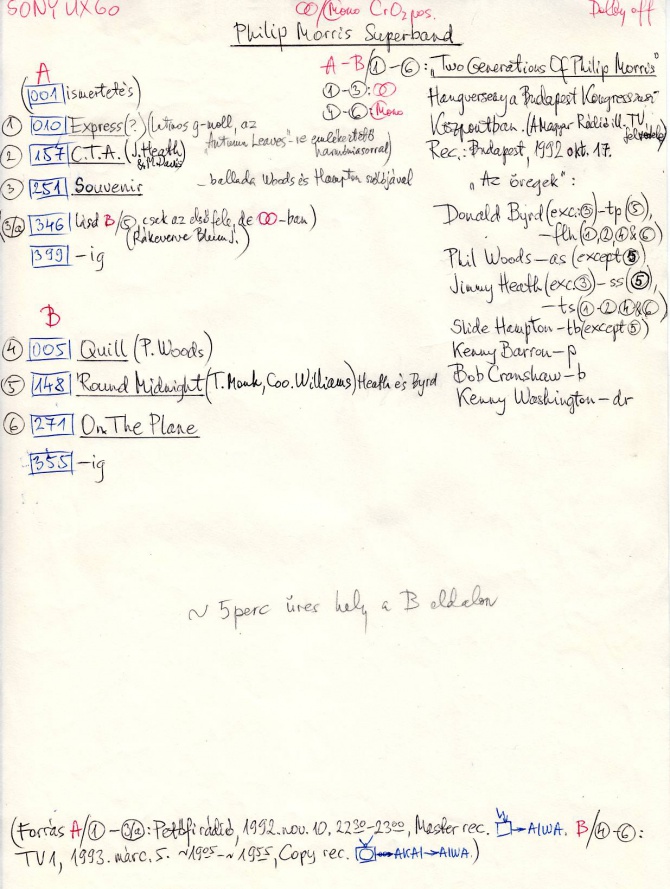 SONY UX60
∞/Mono CrO2 pos.
Dolby off
Philip Morris Superband
A
001 ismertetés)
① 010 Express(?) (latinos g-moll, az "Autumn Leaves"-re emlékeztető harmóniasorral)
② 157 C.T.A. (J. Heath & M. Davis)
③ 251 Souvenir – ballada Woods és Hampton szólójával
(3/a) 346 Lásd B/⑤, csak az első fele, de ∞-ban)
(Rákeverve Bleim J.)
399 -ig
B
④ 005 Quill (P. Woods)
⑤ 148 'Round Midnight (T. Monk, Coo. Williams) Heath és Byrd
⑥ 271 On The Plane
355 -ig
A-B/①-⑥: "Two Generations Of Philip Morris"
①-③: ∞
④-⑥: Mono
Hangverseny a Budapest Kongresszusi
Központban. (A Magyar Rádió ill. TV felvétele)
Rec.: Budapest, 1992 okt. 17.
"Az öregek":
Donald Byrd (exc. ③) – tp (⑤),
– flh (①,②,④&⑥)
Phil Woods – as (except ⑤)
Jimmy Heath (exc. ③) – ss (⑤),
– ts (①-②④&⑥)
Slide Hampton – tb (except ⑤)
Kenny Barron – p
Bob Cranshaw – b
Kenny Washington – dr
~ 5 perc üres hely a B oldalon
(Forrás A/①-(3/a): Petőfi rádió, 1992. nov. 10. 22 30-23 00, Master rec. → AIWA. B/④-⑥:
TV1, 1993. márc. 5. ~19 05-~19 55, Copy rec. → AKAI → AIWA.)